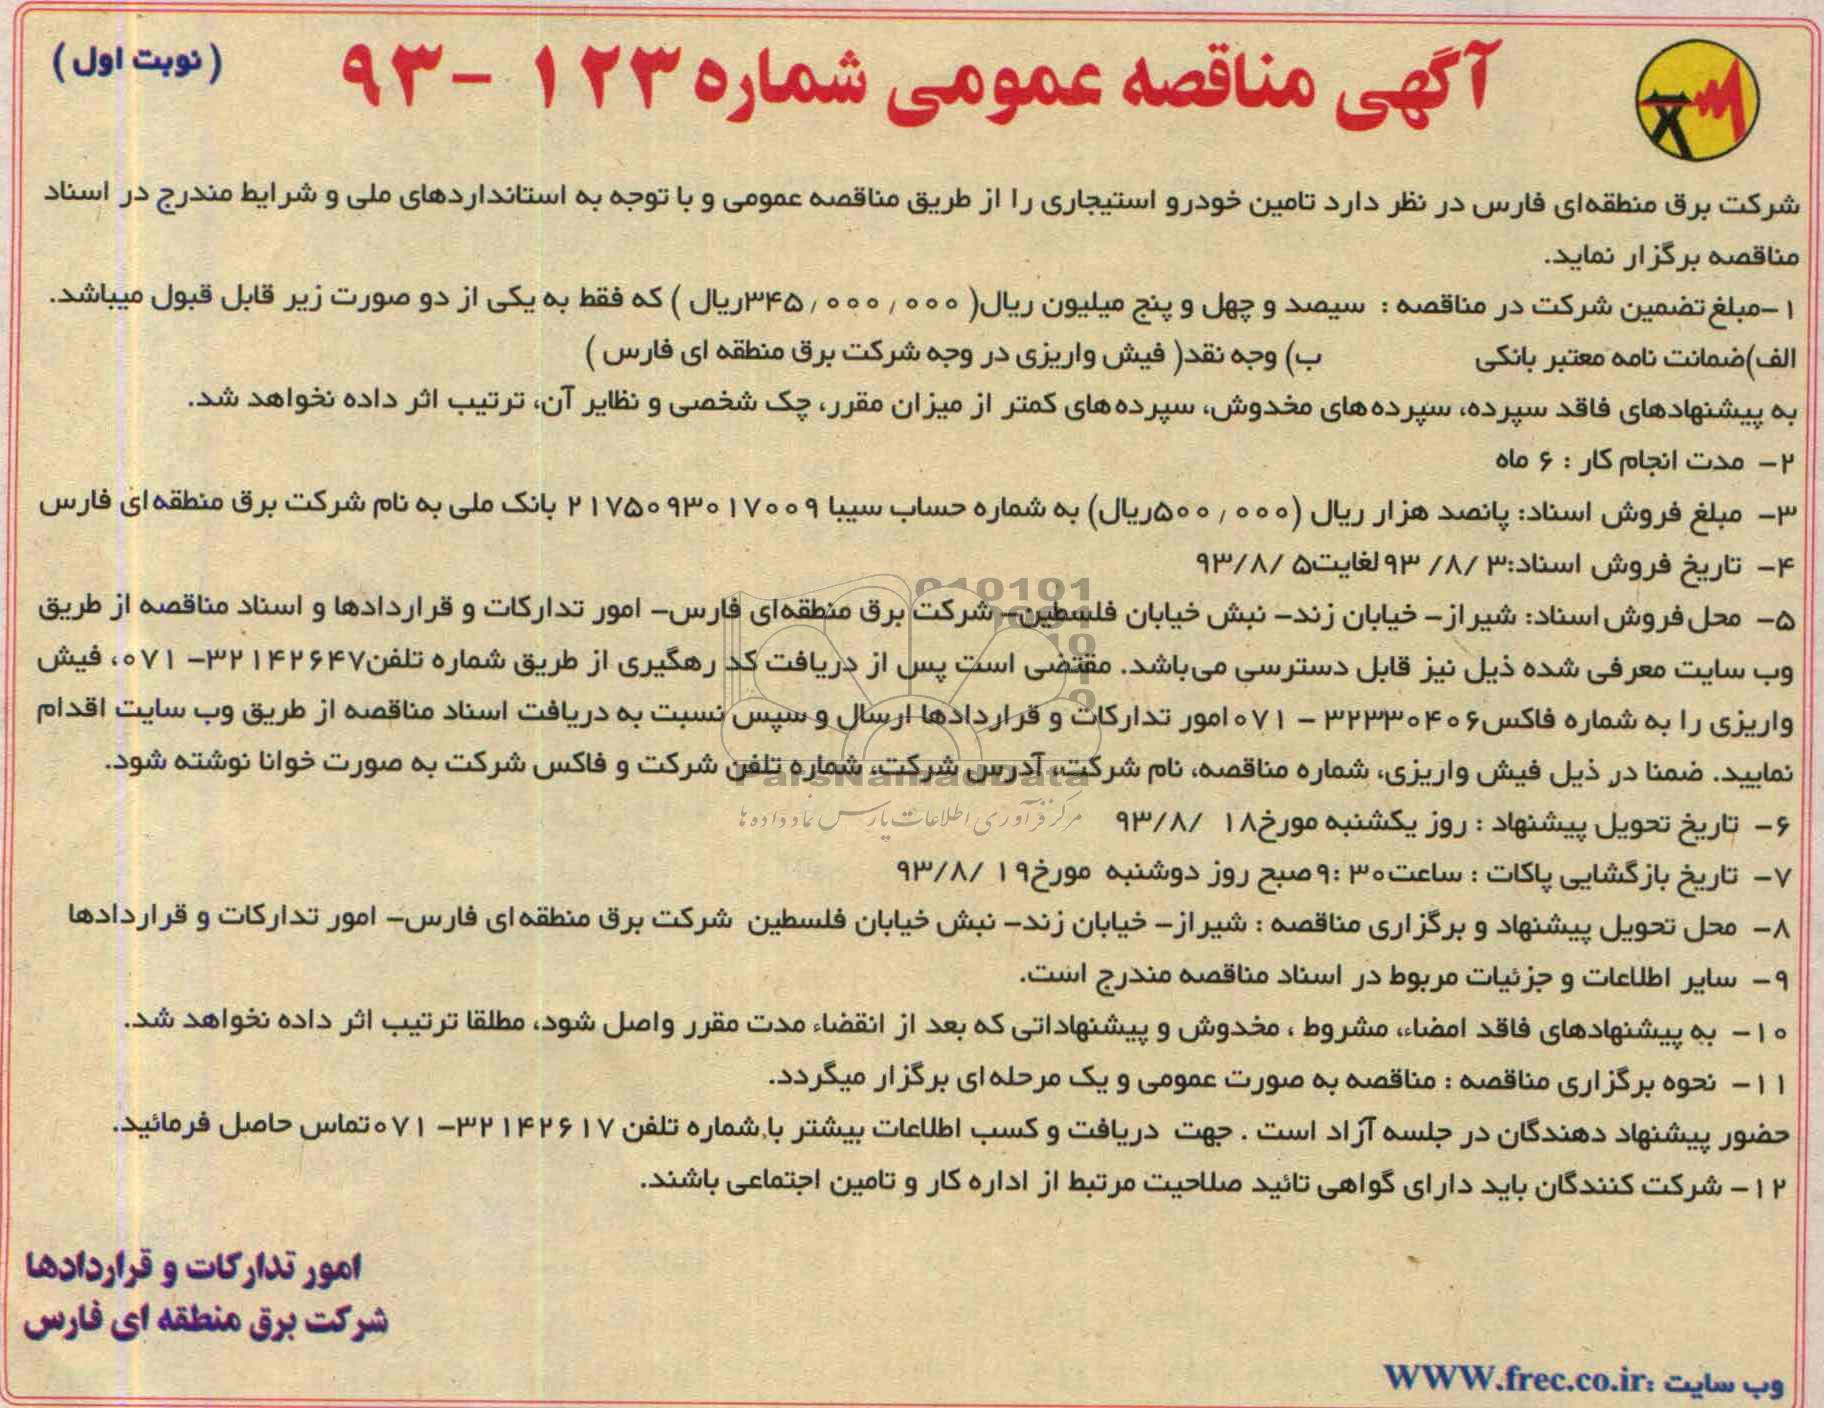 آگهی مناقصه عمومی شماره ۱۲۳ -۹۳
( نوبت اول )
شرکت برق منطقه‌ای فارس در نظر دارد تامین خودرو استیجاری را از طریق مناقصه عمومی و با توجه به استانداردهای ملی و شرایط مندرج در اسناد
مناقصه برگزار نماید.
۱-مبلغ تضمین شرکت در مناقصه : سیصد و چهل و پنج میلیون ریال( ۳۴۵٫۰۰۰٫۰۰۰ریال ) که فقط به یکی از دو صورت زیر قابل قبول میباشد.
الف)ضمانت نامه معتبر بانکی ب) وجه نقد( فیش واریزی در وجه شرکت برق منطقه ای فارس )
به پیشنهادهای فاقد سپرده، سپرده‌های مخدوش، سپرده‌های کمتر از میزان مقرر، چک شخصی و نظایر آن، ترتیب اثر داده نخواهد شد.
۲- مدت انجام کار : ۶ ماه
۳- مبلغ فروش اسناد: پانصد هزار ریال (۵۰۰٫۰۰۰ریال) به شماره حساب سیبا ۲۱۷۵۰۹۳۰۱۷۰۰۹ بانک ملی به نام شرکت برق منطقه‌ای فارس
۴- تاریخ فروش اسناد:۹۳ /۸/ ۳ لغایت۹۳/۸/ ۵
۵- محل فروش اسناد: شیراز- خیابان زند- نبش خیابان فلسطین- شرکت برق منطقه‌ای فارس- امور تدارکات و قراردادها و اسناد مناقصه از طریق
وب سایت معرفی شده ذیل نیز قابل دسترسی می‌باشد. مقتضی است پس از دریافت کد رهگیری از طریق شماره تلفن۳۲۱۴۲۶۴۷- ۰۷۱، فیش
واریزی را به شماره فاکس۳۲۳۳۰۴۰۶ - ۰۷۱ امور تدارکات و قراردادها ارسال و سپس نسبت به دریافت اسناد مناقصه از طریق وب سایت اقدام
نمایید. ضمنا در ذیل فیش واریزی، شماره مناقصه، نام شرکت، آدرس شرکت، شماره تلفن شرکت و فاکس شرکت به صورت خوانا نوشته شود.
ParsNamadData
مرکز فرآوری اطلاعات پارس نماد داده ها
۶- تاریخ تحویل پیشنهاد : روز یکشنبه مورخ۹۳/۸/ ۱۸
۷- تاریخ بازگشایی پاکات : ساعت۹:۳۰ صبح روز دوشنبه مورخ۹۳/۸/ ۱۹
۸- محل تحویل پیشنهاد و برگزاری مناقصه : شیراز- خیابان زند- نبش خیابان فلسطین شرکت برق منطقه‌ای فارس- امور تدارکات و قراردادها
۹- سایر اطلاعات و جزئیات مربوط در اسناد مناقصه مندرج است.
۱۰- به پیشنهادهای فاقد امضاء، مشروط ، مخدوش و پیشنهاداتی که بعد از انقضاء مدت مقرر واصل شود، مطلقا ترتیب اثر داده نخواهد شد.
۱۱- نحوه برگزاری مناقصه : مناقصه به صورت عمومی و یک مرحله‌ای برگزار میگردد.
حضور پیشنهاد دهندگان در جلسه آزاد است . جهت دریافت و کسب اطلاعات بیشتر با شماره تلفن ۳۲۱۴۲۶۱۷- ۰۷۱ تماس حاصل فرمائید.
۱۲- شرکت کنندگان باید دارای گواهی تائید صلاحیت مرتبط از اداره کار و تامین اجتماعی باشند.
امور تدارکات و قراردادها
شرکت برق منطقه ای فارس
وب سایت :WWW.frec.co.ir